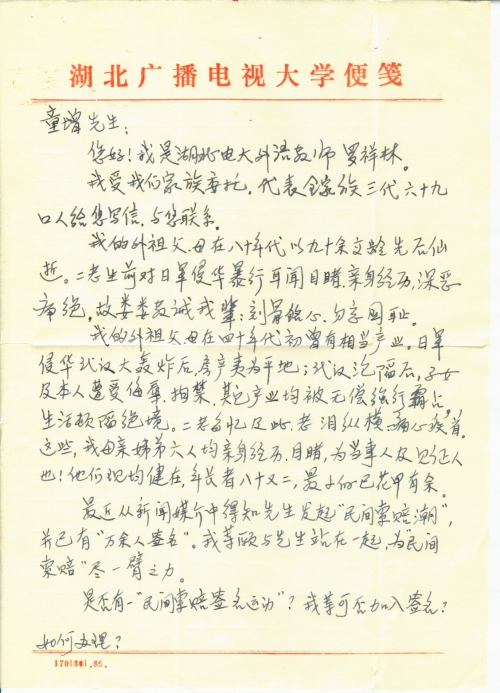 湖北广播电视大学便笺
童增先生:
您好!我是湖北电大外语教师罗祥林。
我受我们家族委托,代表全家族三代六十九
口人给您写信,与您联系。
我的外祖父、母在八十年代以九十余高龄先后仙
逝。二老生前对日军侵华暴行耳闻目睹、亲身经历,深恶
痛绝。故娄娄教诫我辈:刻骨铭心,勿忘国耻。
我的外祖父、母在四十年代初曾有相当产业。日军
侵华武汉大轰炸后,房产夷为平地;武汉沦陷后,子女
及本人遭受侮辱、拘禁,其它产业均被无偿强行霸占。
生活顿陷绝境。二老每忆及此,老泪纵横,痛心疾首。
这些,我母亲姊弟六人均亲身经历、目睹,为当事人及见证人
也!他们现均健在,年长者八十又二,最小的已花甲有余。
最近从新闻媒介中得知先生发起“民间索赔潮”,
并已有“万余人签名”。我等愿与先生站在一起,为“民间
索赔”尽一臂之力。
是否有一“民间索赔签名运动”?我等可否加入签名?
如何办理?
1701801.86.